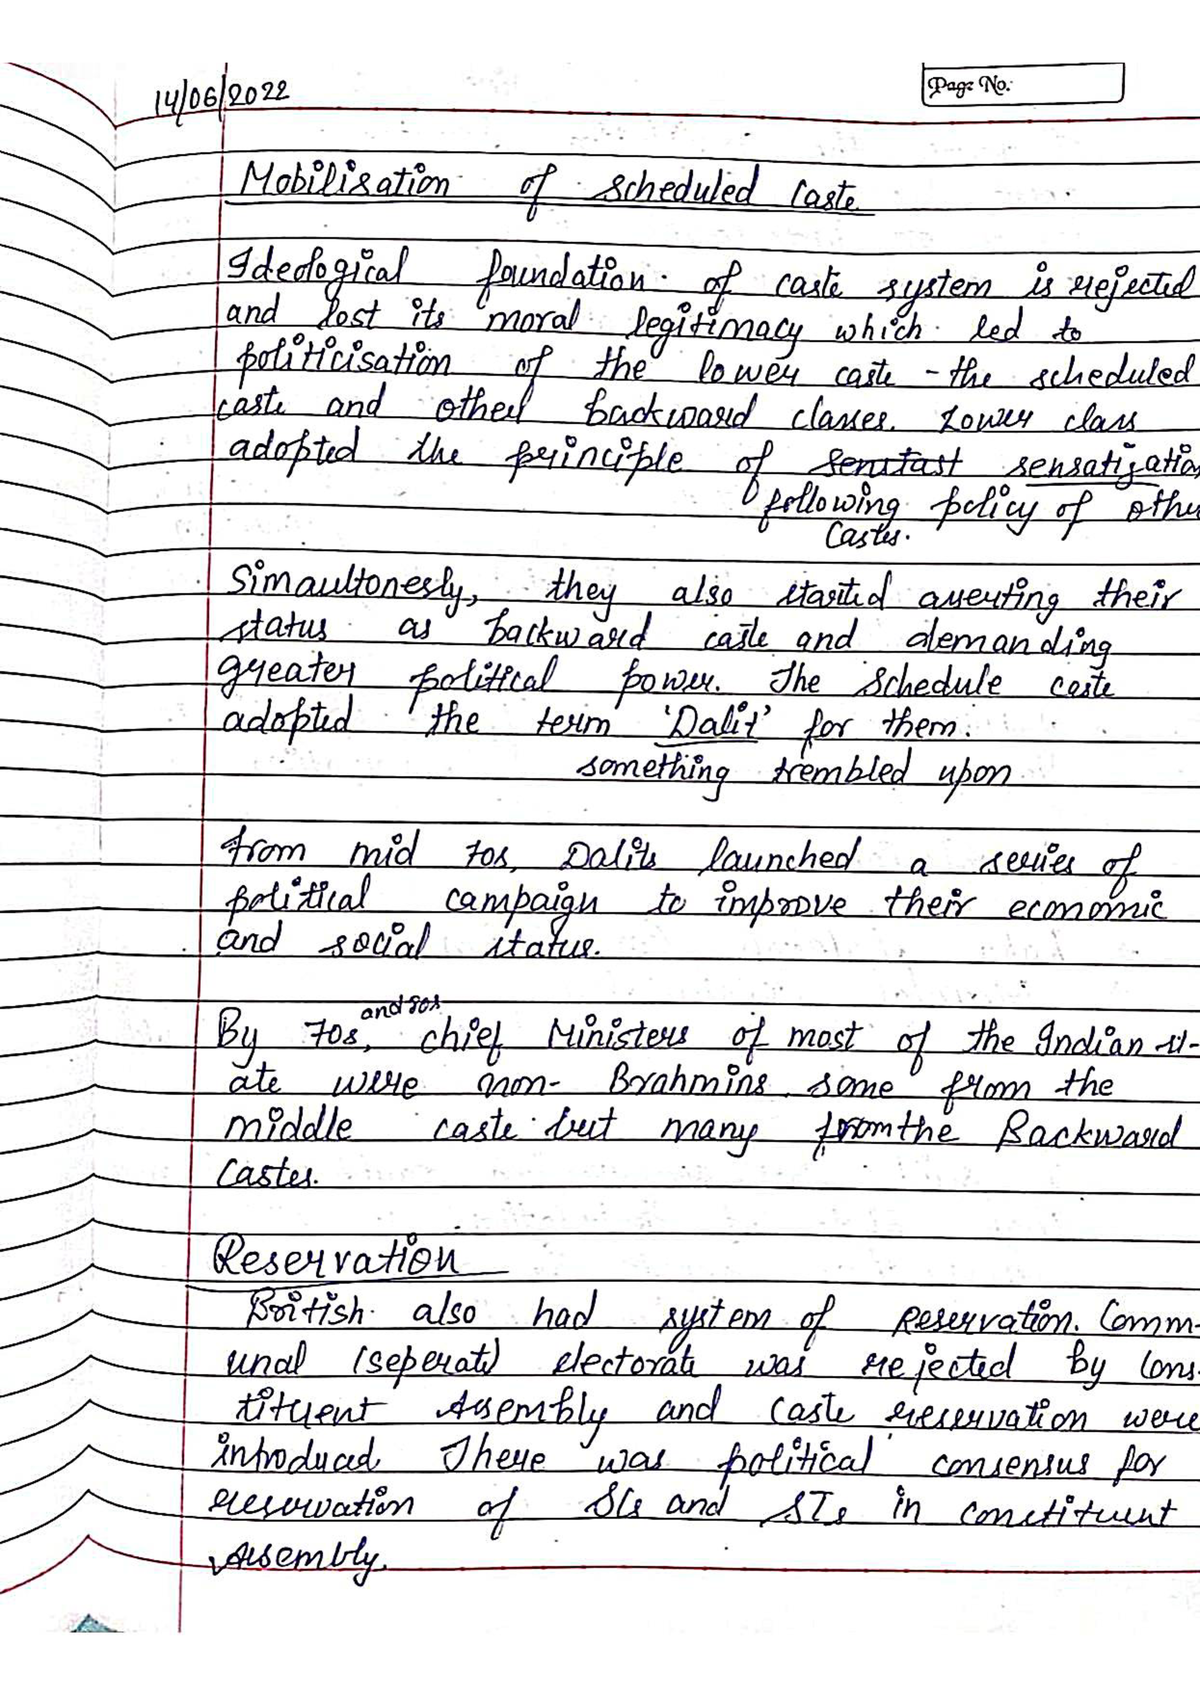 14/06/2022
Page No:
Mobilisation of scheduled caste
Ideological foundation of caste system is rejected
and lost its moral legitimacy which led to
politicisation of the lower caste - the scheduled
caste and other backward classes. Lower class
adopted the principle of sensatization
following policy of other
castes.
Simaultonesly, they also started asserting their
status as backward caste and demanding
greater political power. The Schedule caste
adopted the term 'Dalit' for them.
something trembled upon
From mid 70s, Dalits launched a series of
political campaign to improve their economic
and social status.
and 80s
By 70s, chief Ministers of most of the Indian st-
ate were non- Brahmins some from the
middle caste but many from the Backward
Castes.
Reservation
British also had system of Reservation. Comm-
unal (seperate) electorate was rejected by Cons-
tituent Assembly and caste reservation were
introduced. There was political consensus for
reservation of SCs and STs in constituent
Assembly.